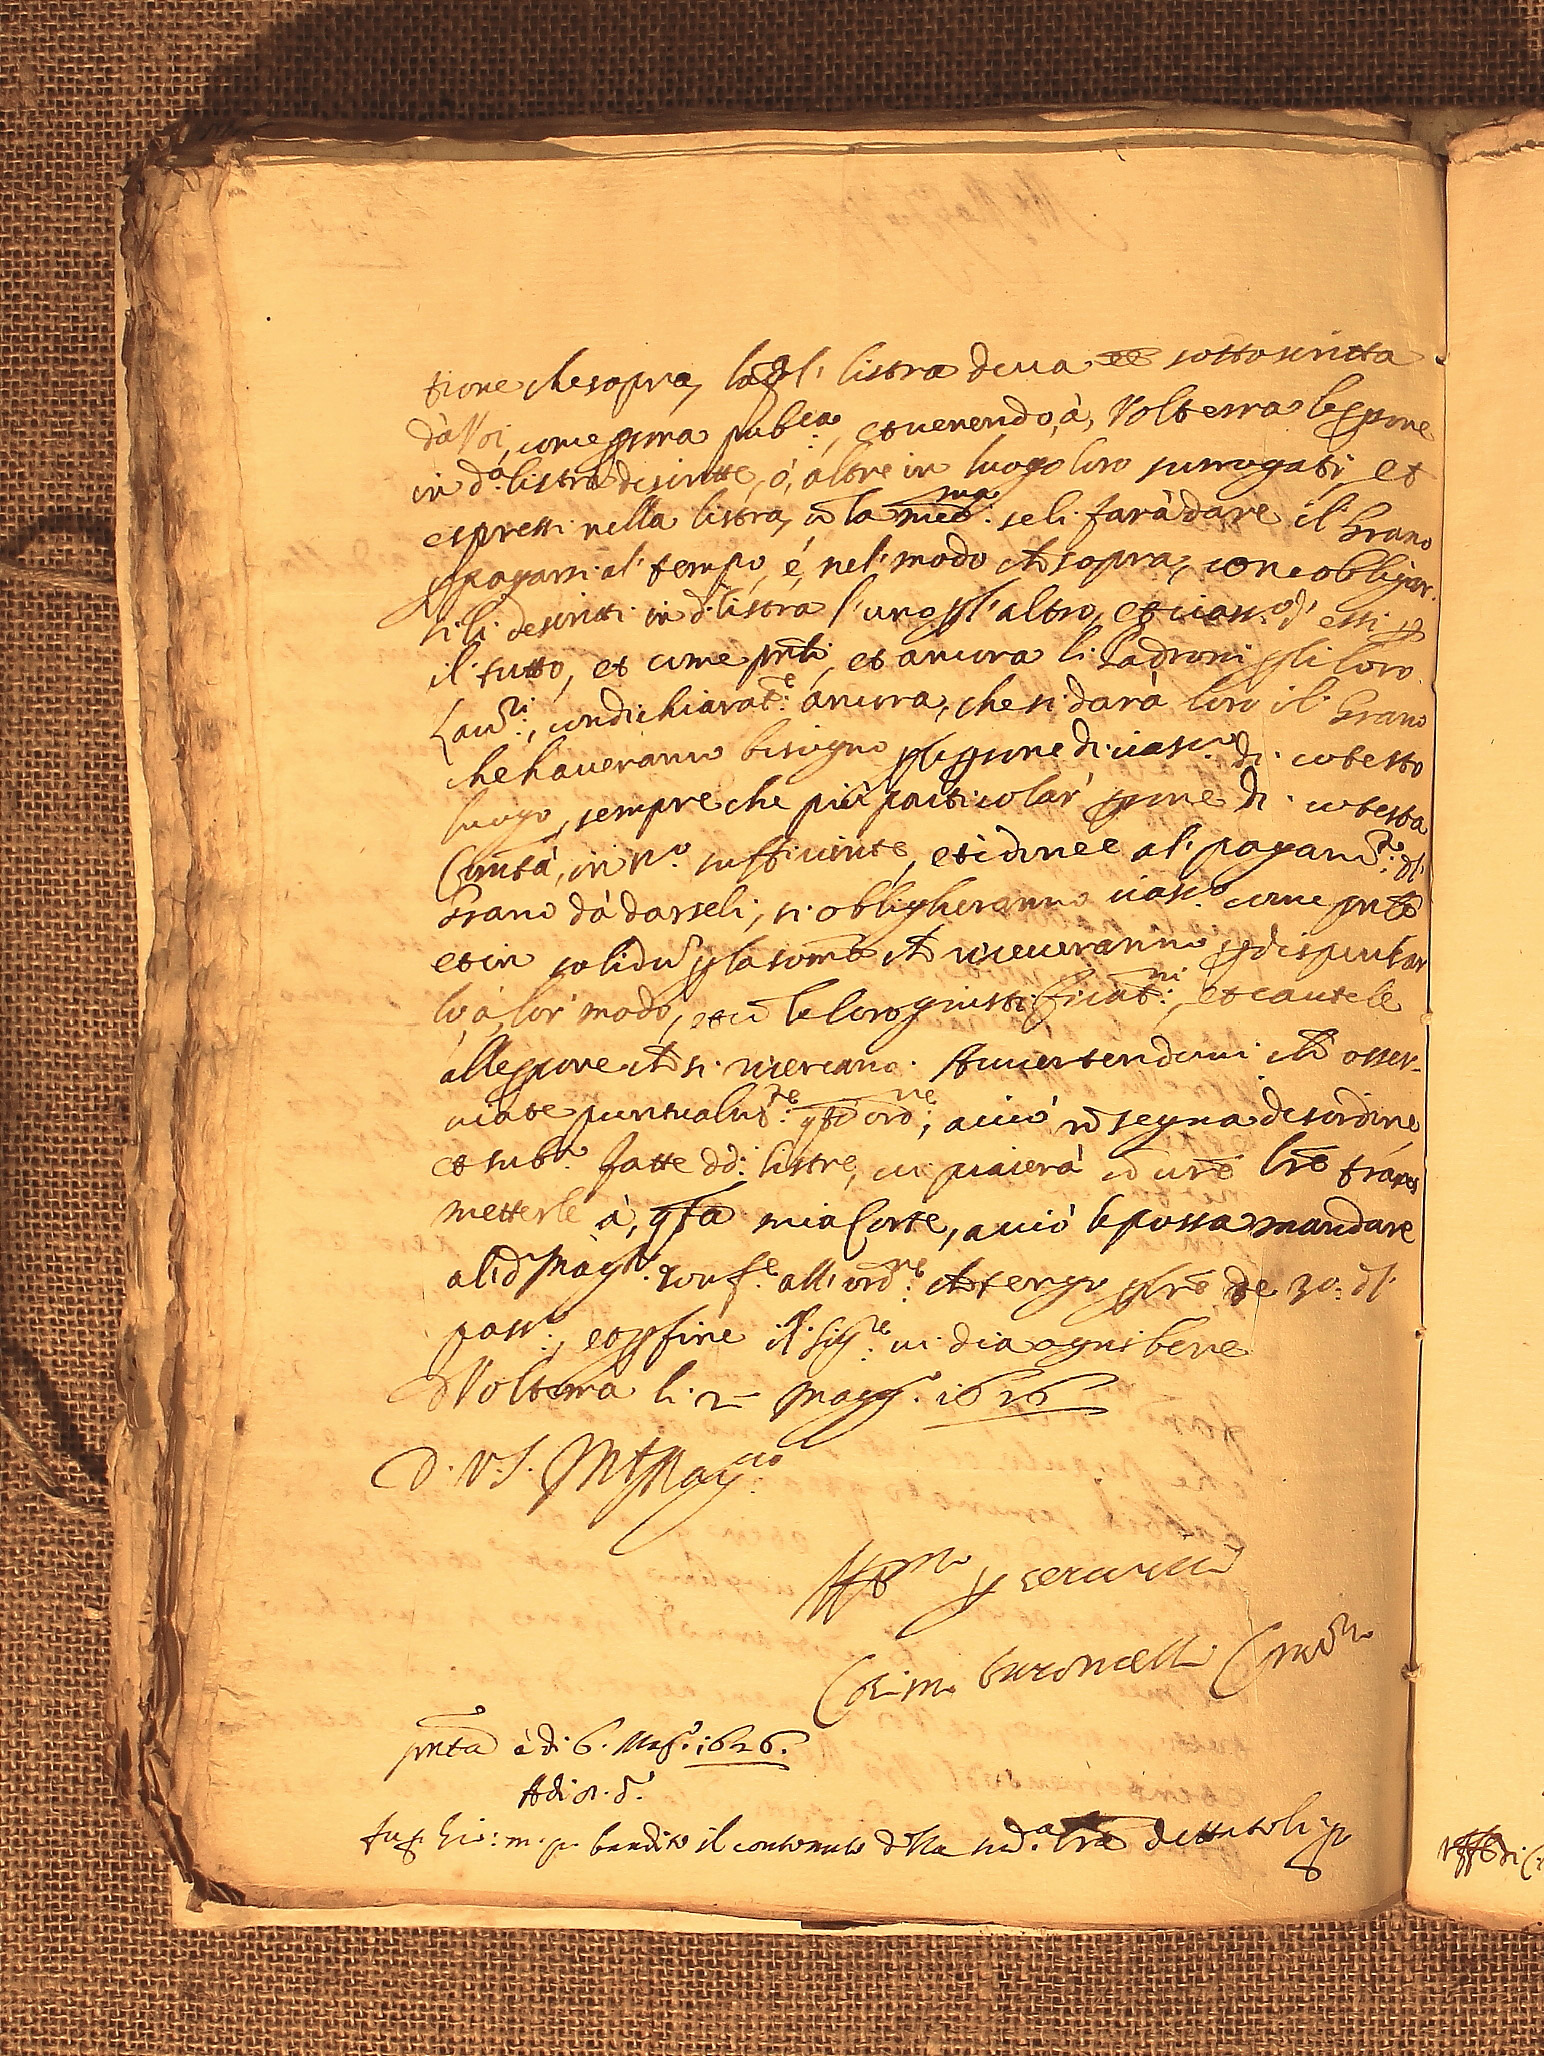 tione che sopra, la ql' listra deua sottoscritta
da Voi, come pma pubca, et uenendo, à, Volterra le psone
in da listra descritte, ò, altre in luogo loro surrogati, et
espressi nella listra, cō la medma: se li farà dare il Grano
p pagarsi al' tempo, é, nel' modo ch sopra, con obligar
si li descritti in d. listra l'uno p l'altro, et ciasco d' essi p
il tutto, et come pnli, et ancora li Padroni p li loro
Lauri:, con dichiarate: ancora, che si darà loro il Grano
che haueranno bisogno p le psone di ciasco di cotesto
luogo, sempre che più particolar' psone di cotesta
Comtà, in no sufficiente, et idonee al' pagamto: dl'
Grano dà darseli, si obligheranno ciasco come pnle
et in solidū p la somā ch riceueranno p distribuir
lo, à, lor' modo, et cō le loro giustificatni:, et cautele
alle psone ch si ricercano. Auuertendoui ch osser-
uiate puntualmte: qsto ordne:, acciò nō segua disordine
et subo fatte dd: listre, ui piacerà cō urē lrē trans
metterle à, qsta mia Corte, acciò le possa mandare
al d Magto confe alli ordne: ch tengo p lrē de 30: dl'
passo:, et p fine il Sigre: ui dia ogni bene
Di Volterra li 2 Maggo. 1626
D. V. S. Mt Magco
Affmo p seruirla
Cosimo Baroncelli Capno
pnta à di 6. Mago. 1626.
Adi o. do
fu p Gio: m. p. bandito il contenuto della sud.a lrā